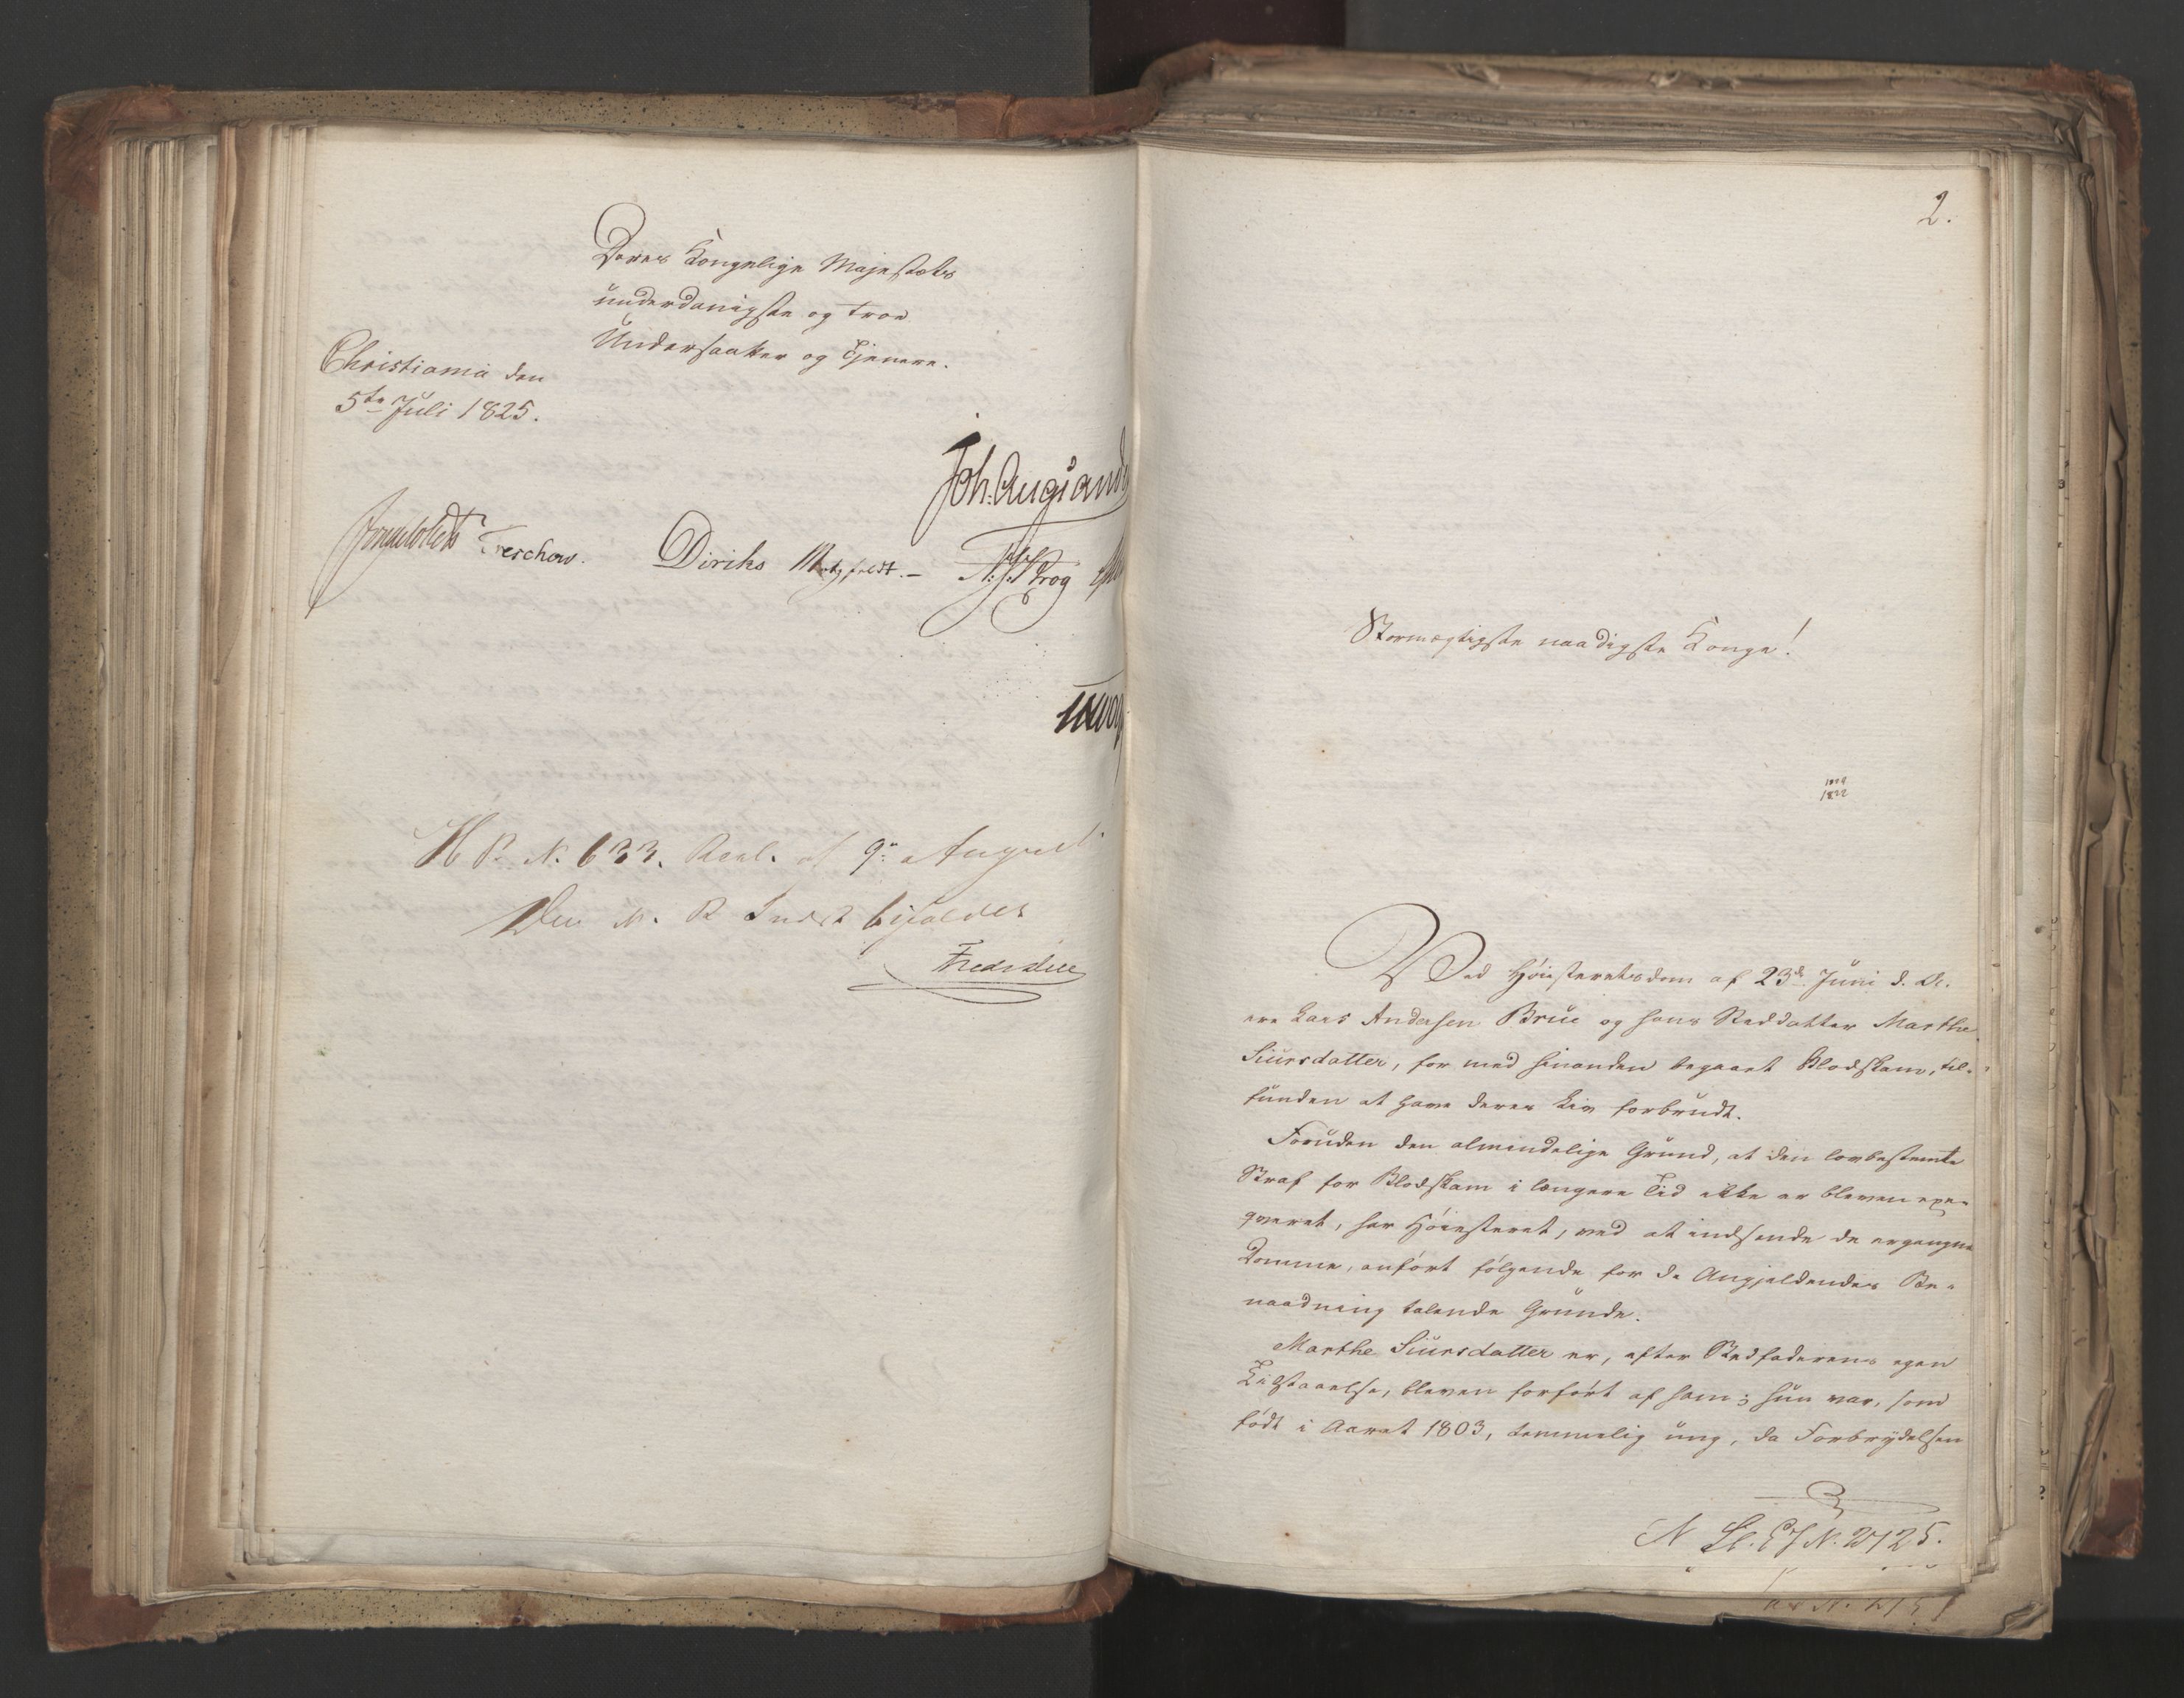 Deres Kongelige Majestæts
underdanigste og troe
Undersaatter og Tjenere.
Christiania den
5te Juli 1825.
Joh. Aug: Sand
Treschow. Diriks Motzfeldt. Krog
H R. N. 633. Resl. af 9de August
Den N. R Indst bifaldes
2.
Stormægtigste naadigste Konge!
1009
1822
Ved Høiesteretsdom af 23de Juni d. A.
ere Lars Andersen Brue og hans Steddatter Marthe
Siursdatter, for med hinanden begaaet Blodskam, til-
funden at have deres Liv forbrudt.
Foruden den almindelige Grund, at den lovbestemte
Straf for Blodskam i længere Tid ikke er bleven exe-
qveret, har Høiesteret, ved at indsende de ergangne
Domme, anført følgende for de Angjeldendes Be-
naadning talende Grunde:
Marthe Siursdatter er, efter Stedfaderens egen
Tilstaaelse, bleven forført af ham; hun var, som
født i Aaret 1803, temmelig ung, da Forbrydelsen